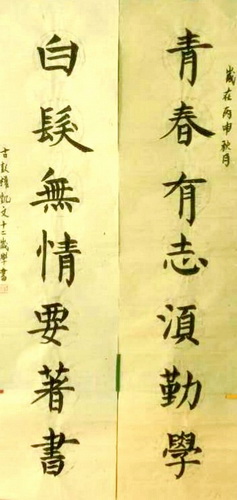 歲在丙申秋月
青春有志須勤學
白髮無情要著書
凱文十二歲學書